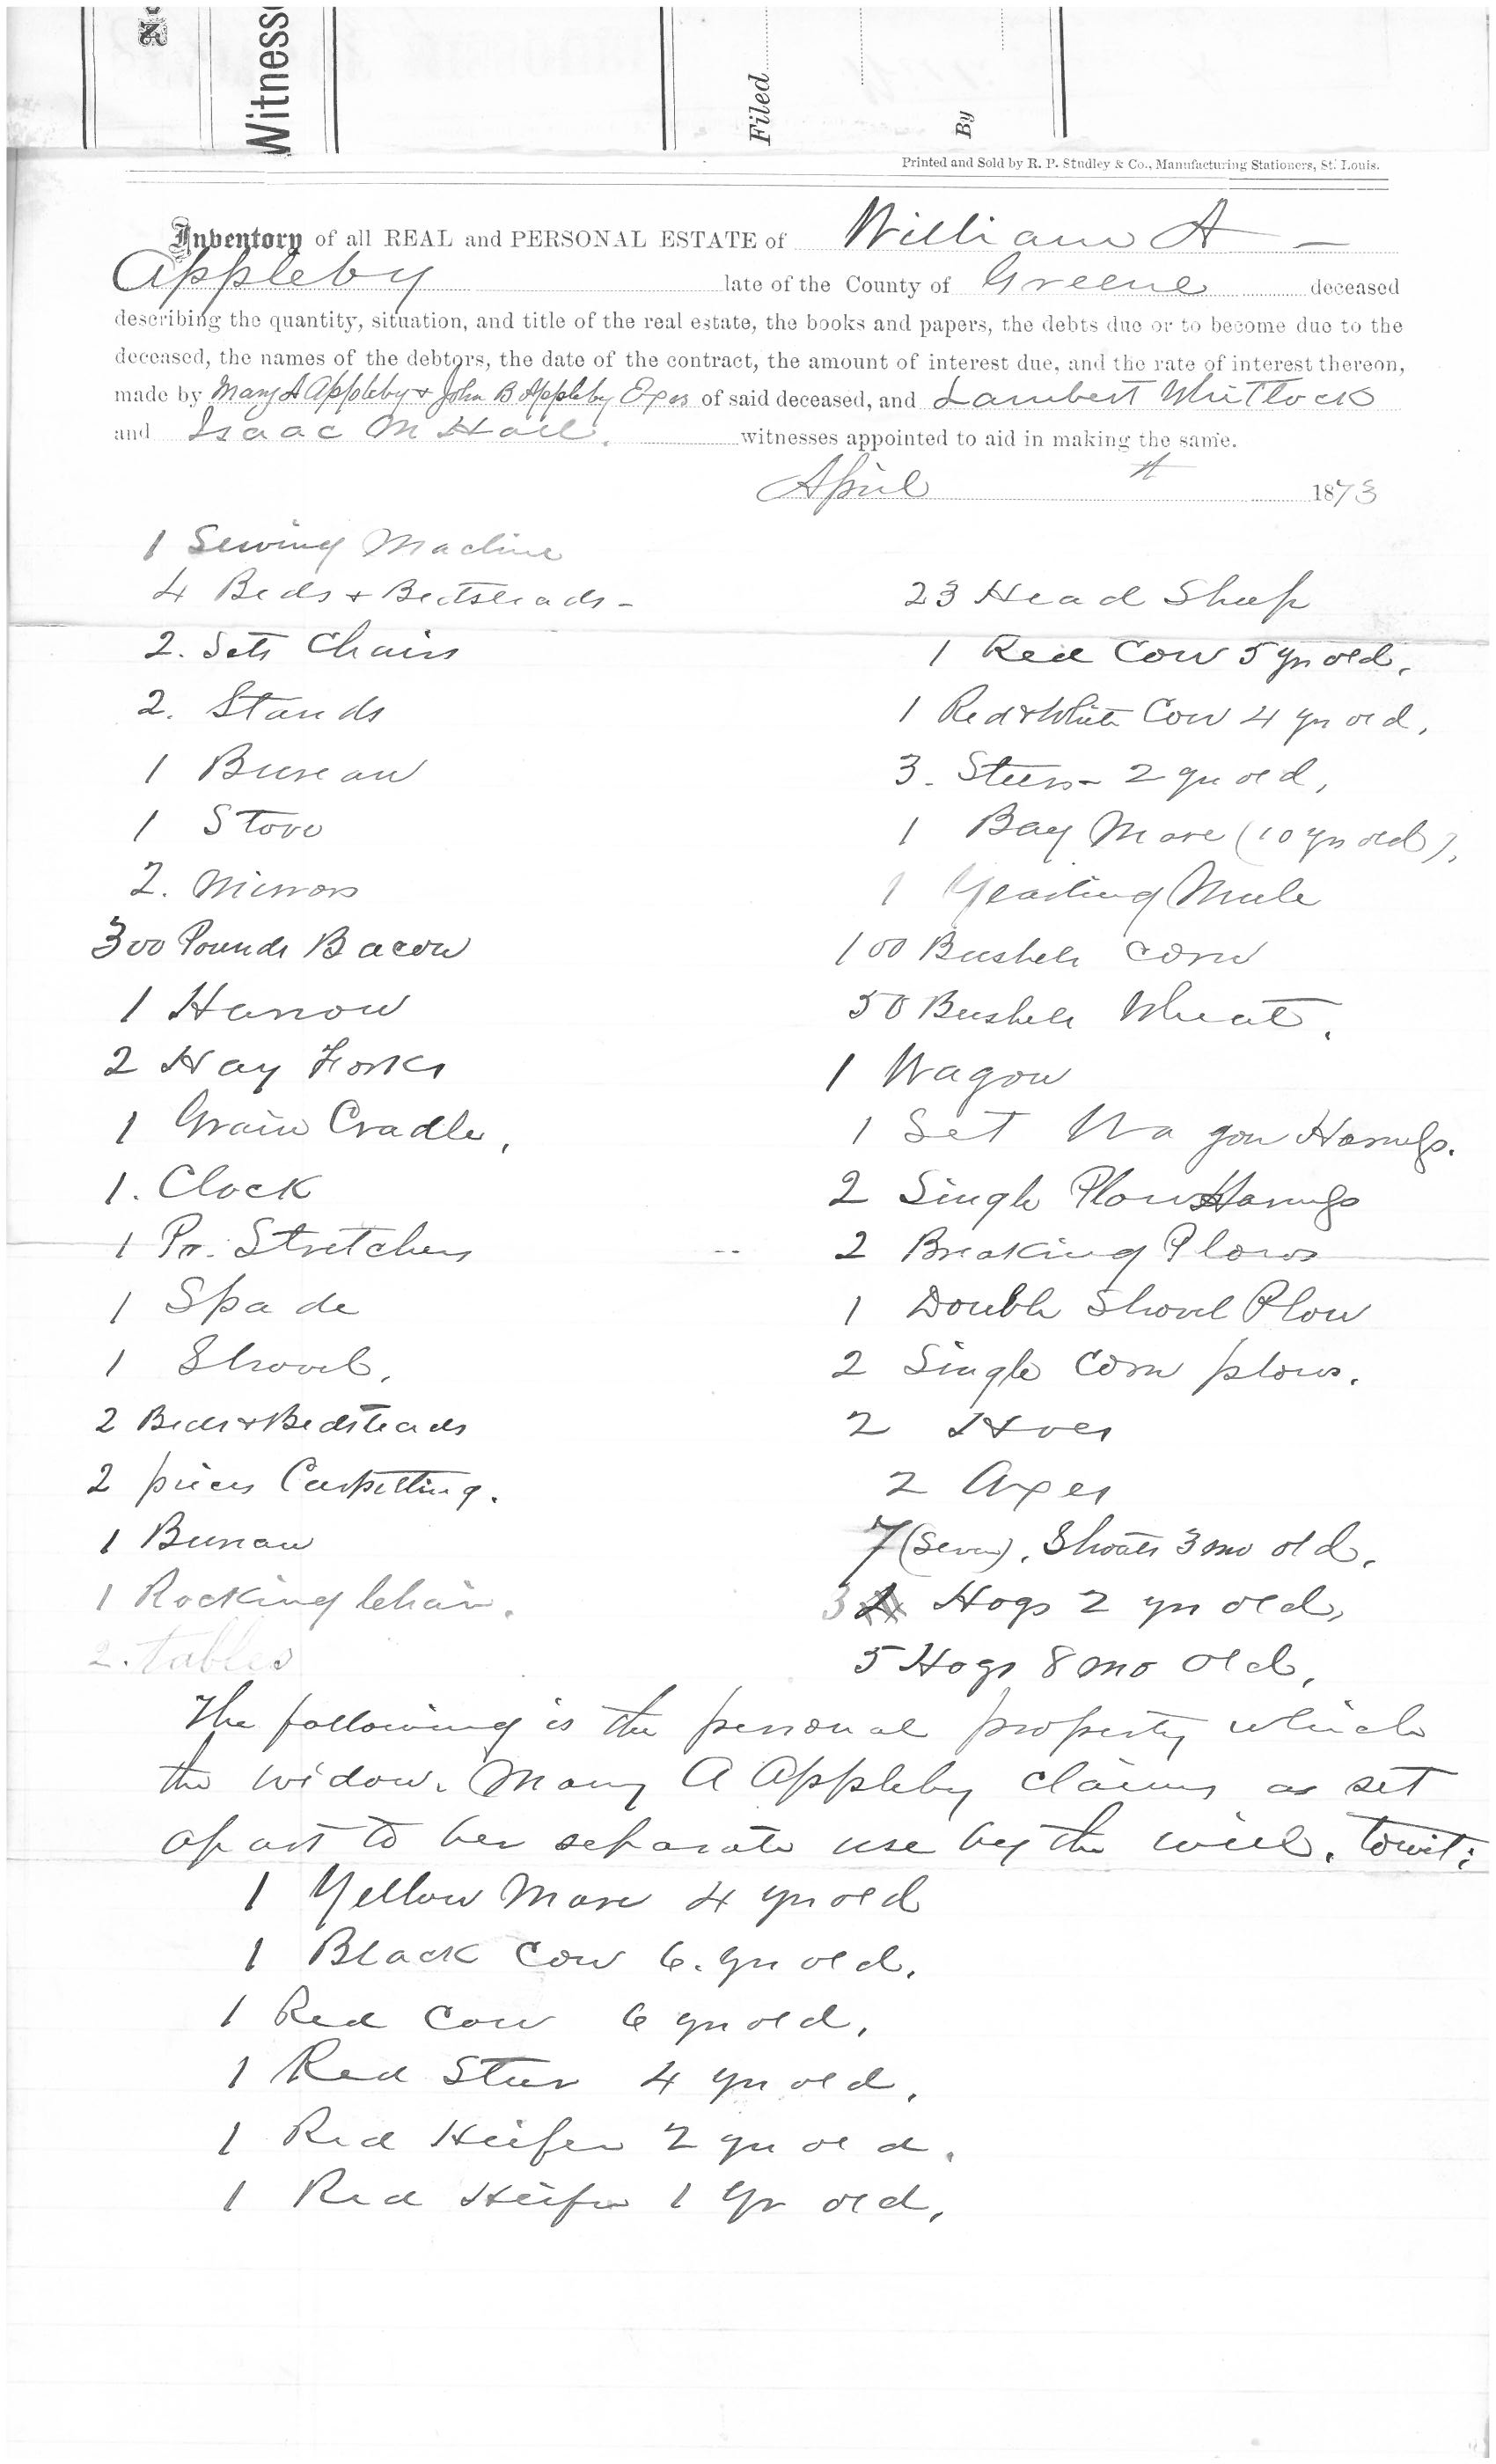 Witness
Filed
By
Printed and Sold by R. P. Studley & Co., Manufacturing Stationers, St. Louis.
Inventory of all REAL and PERSONAL ESTATE of William A
Appleby late of the County of Greene deceased
describing the quantity, situation, and title of the real estate, the books and papers, the debts due or to become due to the
deceased, the names of the debtors, the date of the contract, the amount of interest due, and the rate of interest thereon,
made by Mary A Appleby & John B Appleby Exrs of said deceased, and Lambert Whitlock
and Isaac M Hall. witnesses appointed to aid in making the same.
April th 1873
1 Sewing Machine
4 Beds & Bedsteads -
2. Sets Chairs
2. Stands
1 Bureau
1 Stove
2. Mirrors
300 Pounds Bacon
1 Harrow
2 Hay Forks
1 Grain Cradle,
1. Clock
1 Pr. Stretchers
1 Spade
1 Shovel,
2 Beds & Bedsteads
2 pieces Carpetting.
1 Bureau
1 Rocking Chair.
2. tables
23 Head Sheep
1 Red Cow 5 yrs old,
1 Red & White Cow 4 yrs old,
3. Steers - 2 yrs old,
1 Bay Mare (10 yrs old),
1 Yearling Mule
100 Bushels Corn
50 Bushels Wheat.
1 Wagon
1 Set Wagon Harness.
2 Single Plow Harness
2 Breaking Plows
1 Double Shovel Plow
2 Single Corn plows.
2 Hoes
2 Axes
7 (Seven), Shoats 3 mo old.
3 Hogs 2 yrs old,
5 Hogs 8 mo old,
The following is the personal property which
the widow. Mary A Appleby claims as set
apart to her separate use by the will, towit:
1 Yellow Mare 4 yrs old
1 Black Cow 6. yrs old,
1 Red Cow 6 yrs old,
1 Red Steer 4 yrs old,
1 Red Heifer 2 yrs old,
1 Red Heifer 1 Yr old,